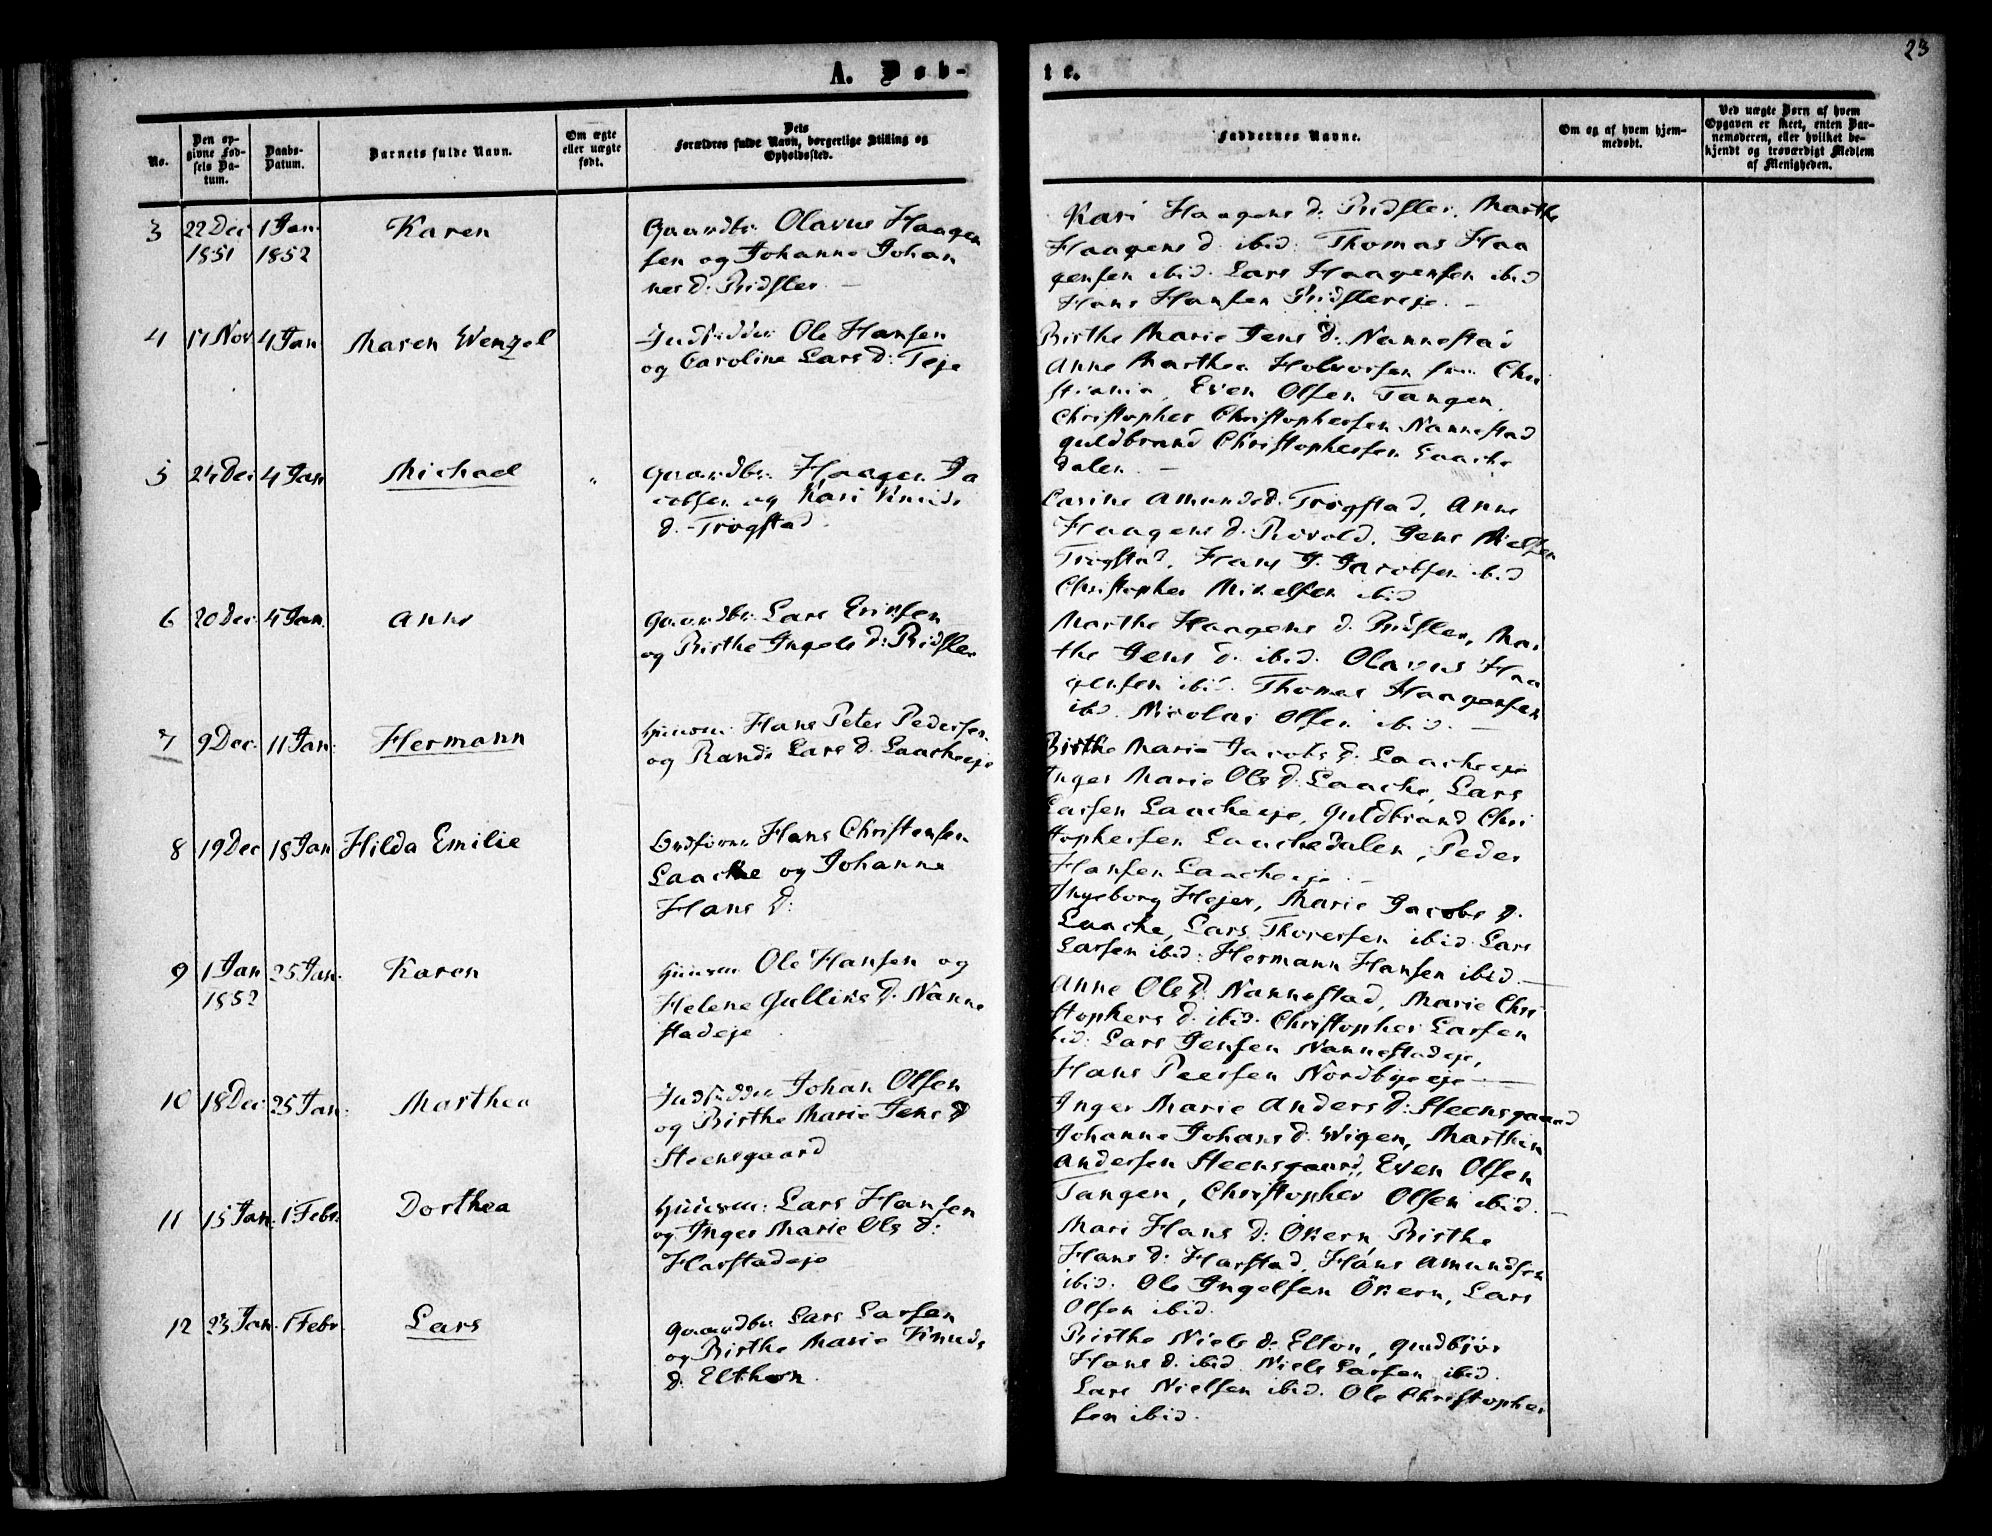 23
A. Døb-
te.
No.
Den op-
givne Fød-
sels Da-
tum.
Daabs-
Datum.
Barnets fulde Navn.
Om ægte
eller uægte
født.
Dets
Forældres fulde Navn, borgerlige Stilling og
Opholdssted.
Faddernes Navne.
Om og af hvem hjem-
medøbt.
Ved uægte Børn af hvem
Opgaven er skeet, enten Bar-
nemoderen, eller hvilket be-
kjendt og troværdigt Medlem
af Menigheden.
3 22 Dec 1 Jan Karen
1851 1852
Gaardbr: Olavus Haagen
sen og Johanne Johan
nes d:
Kari Haagens d: Marthe
Haagens d. ibid: Thomas Haa
gensen ibid. Lars Haagensen ibid
Hans Hansen
4 17 Nov 4 Jan Maren Wenzel
Indsidder Ole Hansen
og Caroline Lars d: Teje
Birthe Marie Jens d: Nannestad
Anne Marthea Halvorsen fra Chri
stiania, Even Olsen Tangen,
Christopher Christophersen Nannestad
Guldbrand Christophersen Laache
dalen. —
5 24 Dec 4 Jan Michael
Gaardbr: Haagen Ja
cobsen og Kari Knuds
d. Trøgstad
Karine Amunds d. Trøgstad, Anne
Haagens d: Jens Nielsen
Trøgstad, Hans J. Jacobsen ibid
Christopher Mikelsen ibid
6 20 Dec 4 Jan. Anne
Gaardbr: Lars Ericsen
og Birthe Ingels d:
Marthe Haagens d. Mar
the Jens d. ibid. Olavus Haa
gensen ibid. Thomas Haagensen
ibd. Nicolai Olsen ibid. —
7 9 Dec. 11 Jan. Hermann
Huusm: Hans Peter Pedersen
og Randi Lars d. Laacheeje
Birthe Marie Jacobs d. Laacheeje
Inger Marie Ols d. Laache, Lars
Larsen Laacheeje, Guldbrand Chri
stophersen Laachedalen, Peder
Hansen Laacheeje. —
8 19 Dec 18 Jan Hilda Emilie
Hans Christensen
Laache og Johanne
Hans d:
Ingeborg Hejer, Marie Jacobs d.
Laache, Lars Thoresen ibid Lars
Larsen ibid: Hermann Hansen ibid. —
9 1 Jan 25 Jan. Karen
1852
Huusm Ole Hansen og
Helene Gulliks d. Nanne
stadeje
Anne Ols d. Nannestad, Marie Chri
stophers d. ibid. Christopher Larsen
ibid: Lars Jensen Nannestadeje,
Hans Peersen Nordbyeeje —
10 18 Dec 25 Jan. Marthea
Indsidder Johan Olsen
og Birthe Marie Jens d
Steensgaard
Inger Marie Anders d: Steensgaard
Johanne Johans d. Wigen, Marthin
Andersen Steensgaard, Even Olsen
Tangen, Christopher Olsen ibid. —
11 15 Jan. 1 Febr. Dorthea
Huusm: Lars Hansen
og Inger Marie Ols d:
Harstadeje
Mari Hans d: Økern Birthe
Hans d: Harstad, Hans Amundsen
ibid. Ole Ingelsen Økern, Lars
Olsen ibid.
12 23 Jan. 1 Febr. Lars
Gaardbr: Lars Larsen
og Birthe Marie Knuds
d. Elthon.
Birthe Niels d. Elton, Gudbjør
Hans d. ibid. Niels Larsen ibid.
Lars Nielsen ibid. Ole Christopher
sen ibid.